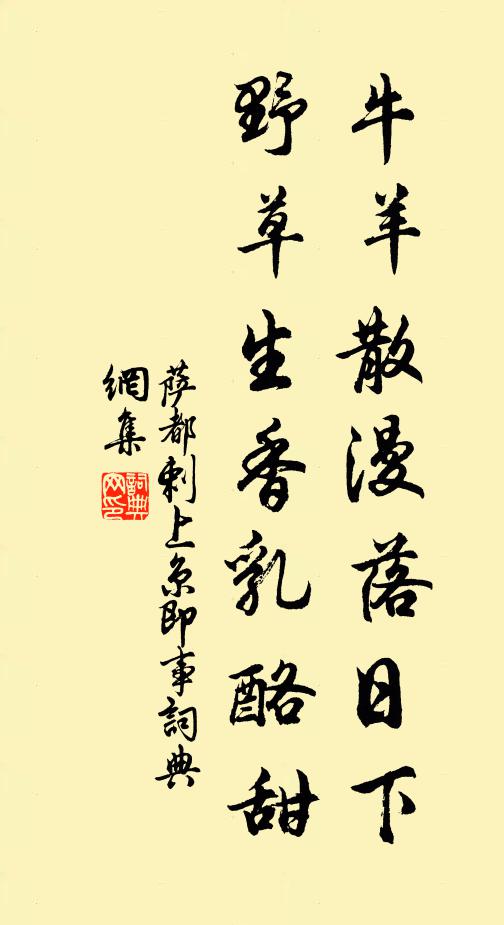 牛羊散漫落日下
野草生香乳酪甜
薩都剌上京即事詞典
網集
詞典
网印